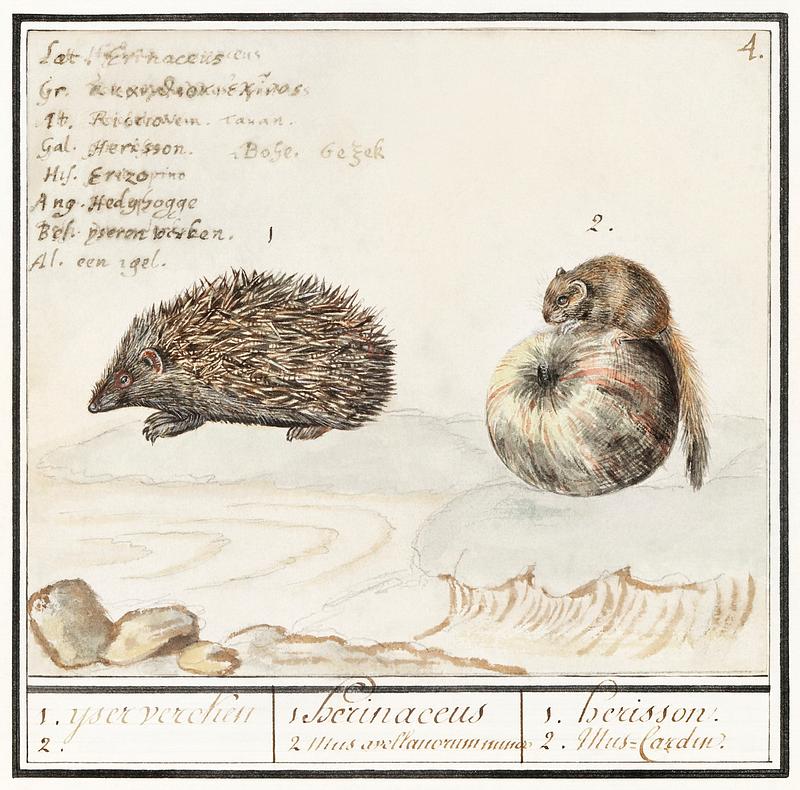 4.
Lat. Erinaceus
Gr.
It.
Gal. Herisson. Bohe. Gezek
His. Erizo
Ang. Hedghogge
Bel. yseren verken.
Al. een igel.
1
2.
1. yserverchen
2.
1 herinaceus
2 Mus avellanorum minor
1. herisson.
2. Mus-Cardin.